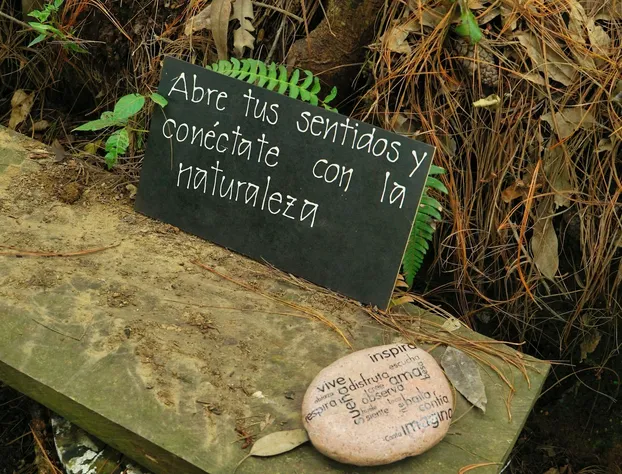 Abre tus sentidos y
conéctate con la
naturaleza
inspira
vive
disfruta
escucha
ama
respira
sueña
observa
baila
siente
confía
Canta
imagina